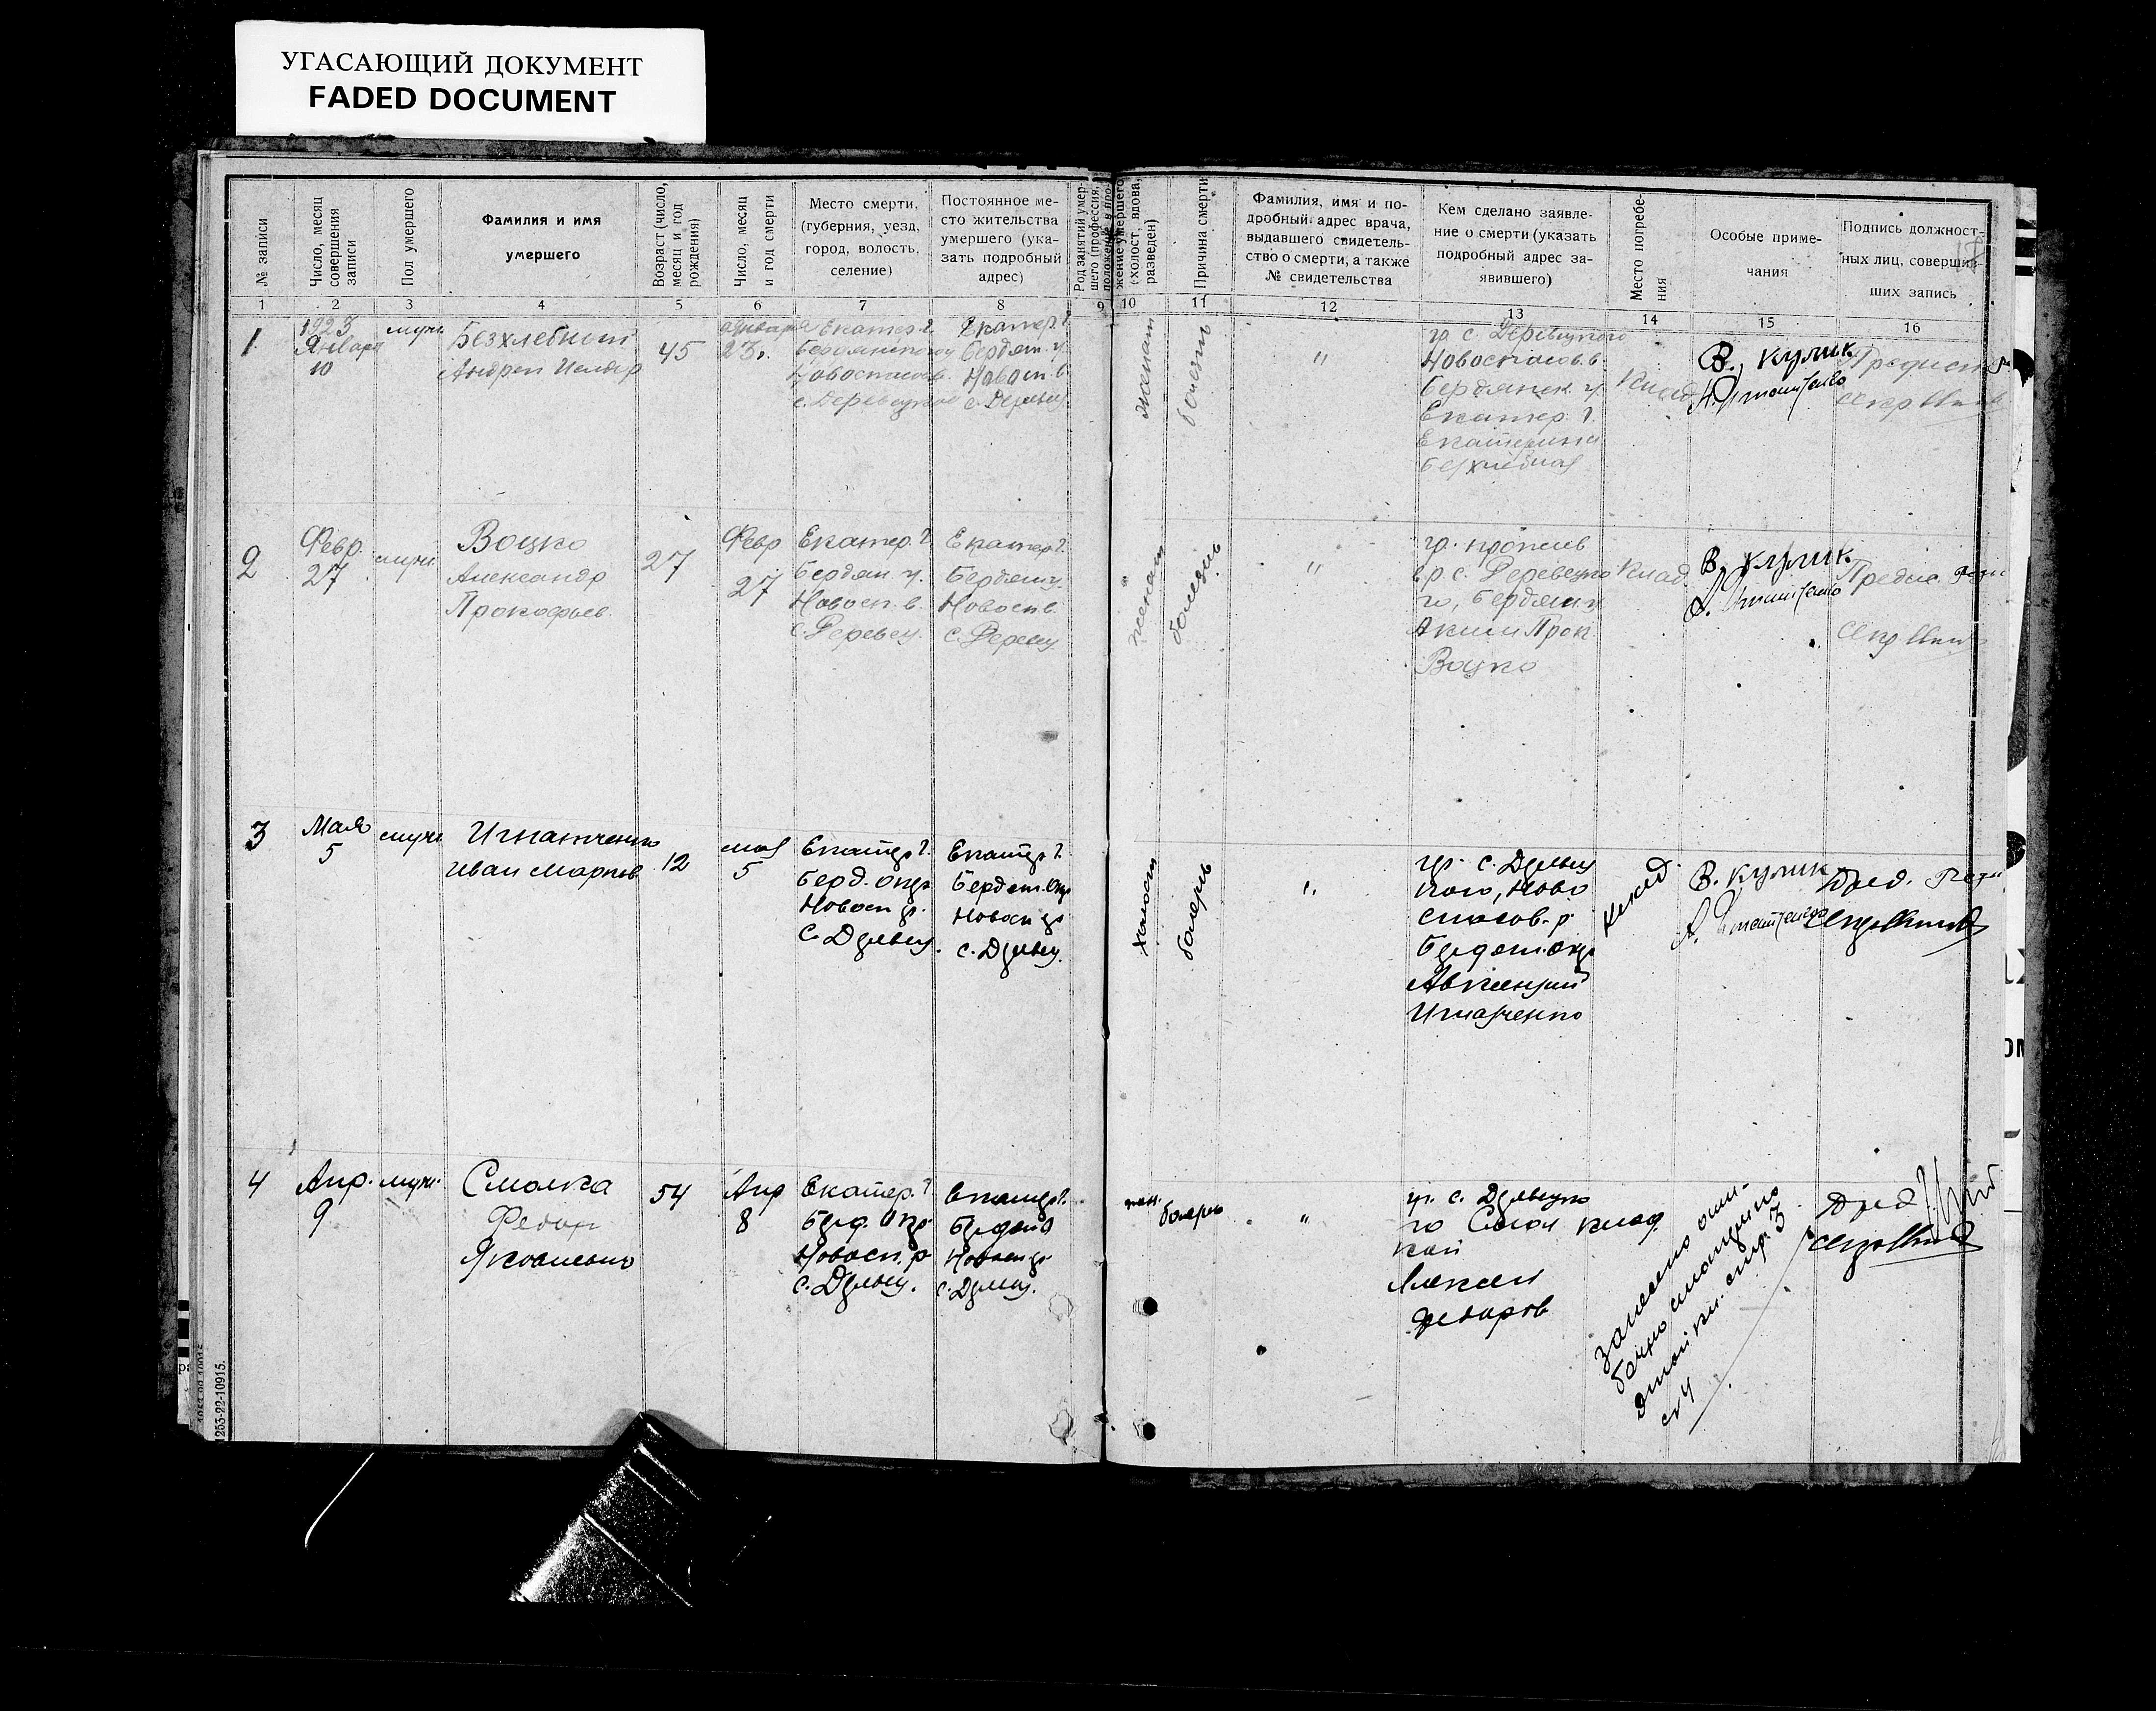 УГАСАЮЩИЙ ДОКУМЕНТ
FADED DOCUMENT
№ записи
Число, месяц
совершения
записи
Пол умершего
Фамилия и имя
умершего
Возраст (число,
месяц и год
рождения)
Число, месяц
и год смерти
Место смерти,
(губерния, уезд,
город, волость,
селение)
Постоянное ме-
сто жительства
умершего (ука-
зать подробный
адрес)
Род занятий умер-
шего (профессия,
(холост, вдова,
разведен)
Причина смерти
Фамилия, имя и по-
дробный адрес врача,
выдавшего свидетель-
ство о смерти, а также
№ свидетельства
Кем сделано заявле-
ние о смерти (указать
подробный адрес за-
явившего)
Место погребе-
ния
Особые приме-
чания
Подпись должност-
ных лиц, соверши-
ших запись
1 2 3 4 5 6 7 8 9 10 11 12 13 14 15 16
1
1923
Января
10
муж
Безхлебный
Андрей
45
января
23г.
Екатер. г.
Бердянского у
Новоспасов.
с. Деревецкое
Екатер. г.
Бердян. у.
Новосп. в.
с. Деревец.
женат
болезнь
"
гр. с. Деревецкого
Новоспасов. в.
Бердянск. у.
Екатер. г.
Екатерина
Безхлебная
Клад
В. Кулик
2
Февр.
27
муж.
Воцко
Александр
Прокофьев.
27
Февр
27
Екатер. г.
Бердян у.
Новосп. в.
с. Деревец.
Екатер. г.
Бердян у.
Новосп. в.
с. Деревец.
женат
болезнь
"
гр. прожив
в р с. Деревецко
го, Бердян у
Прок
Воцко
Клад
В. Кулик.
Предс.
3
Мая
5
муж
Игнатченко
Иван Марков
12
мая
5
Екатер г.
Берд. окр
Новосп р.
с. Деревец.
Екатер г.
Бердян. Окр
Новосп р
с. Деревец.
холост
болезнь
"
гр. с. Деревец
кого, Ново
спасов. р.
Бердян. окр
Авксентий
Игнатченко
Клад.
В. Кулик
Пред.
4
Апр.
9
муж.
Смолка
Федор
Яковлевич
54
Апр
8
Екатер. г
Берд. Окр
Новосп. р
с. Деревец.
Екатер г.
Бердян О
Новосп р
с. Деревец.
жен.
болезнь
"
гр. с. Деревецко
го Смол
кой
Алексей
Федоров
клад
занесено оши-
бочно смотри по
этой кн. стр. 3
ст 4
Пред
1253-22-10915.